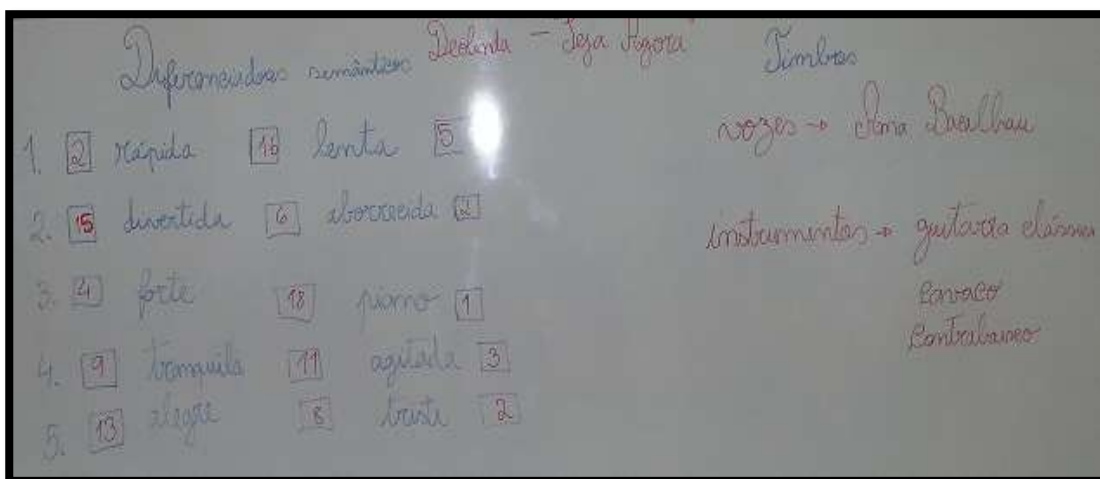 Diferenciadores semânticos Deolinda - "Seja Agora"
1. 2 rápida 16 lenta 5
2. 15 divertida 6 aborrecida 2
3. 4 forte 18 piano 1
4. 9 tranquila 11 agitada 3
5. 13 alegre 8 triste 2
Timbres
vozes → Ana Bacalhau
instrumentos → guitarra clássica
cavaco
contrabaixo